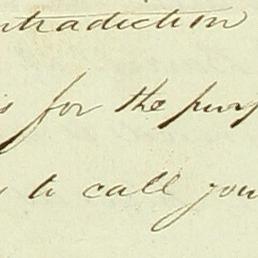 ntradiction
s for the purp
to call you